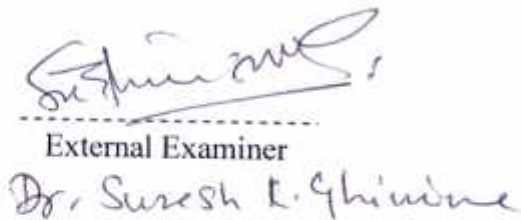 External Examiner
Dr. Suresh R. Ghimire